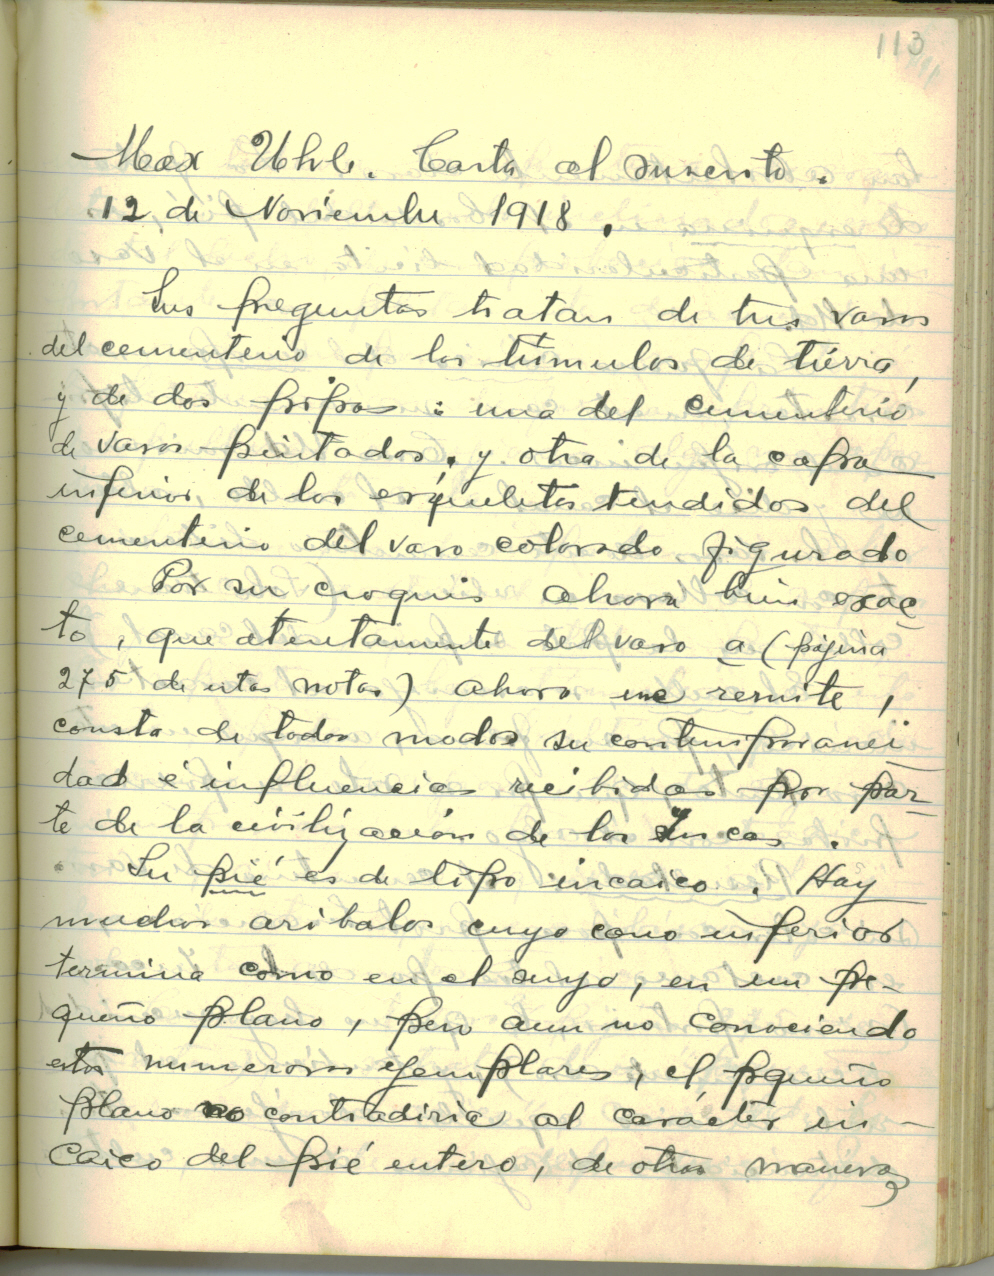 113
Max Uhle. Carta al suscrito.
12 de Noviembre 1918.
Sus preguntas tratan de tres vasos
del cementerio de los túmulos de tierra,
y de dos pipas: una del cementerio
de vasos pintados, y otra de la capa
inferior de los esqueletos tendidos del
cementerio del vaso colorado figurado
Por su croquis ahora bien exac
to, que atentamente del vaso a (página
275 de estas notas) ahora me remite,
consta de todos modos su contemporanei
dad é influencias recibidas por par
te de la civilización de los Incas.
Su pié es de tipo incaico. Hay
muchos aribalos cuyo cono inferior
termina como en el suyo, en un pe-
queño plano, pero aun no conociendo
estos numerosos ejemplares, el pqueño
plano no contradiria al carácter in-
caico del pié entero, de otra manera